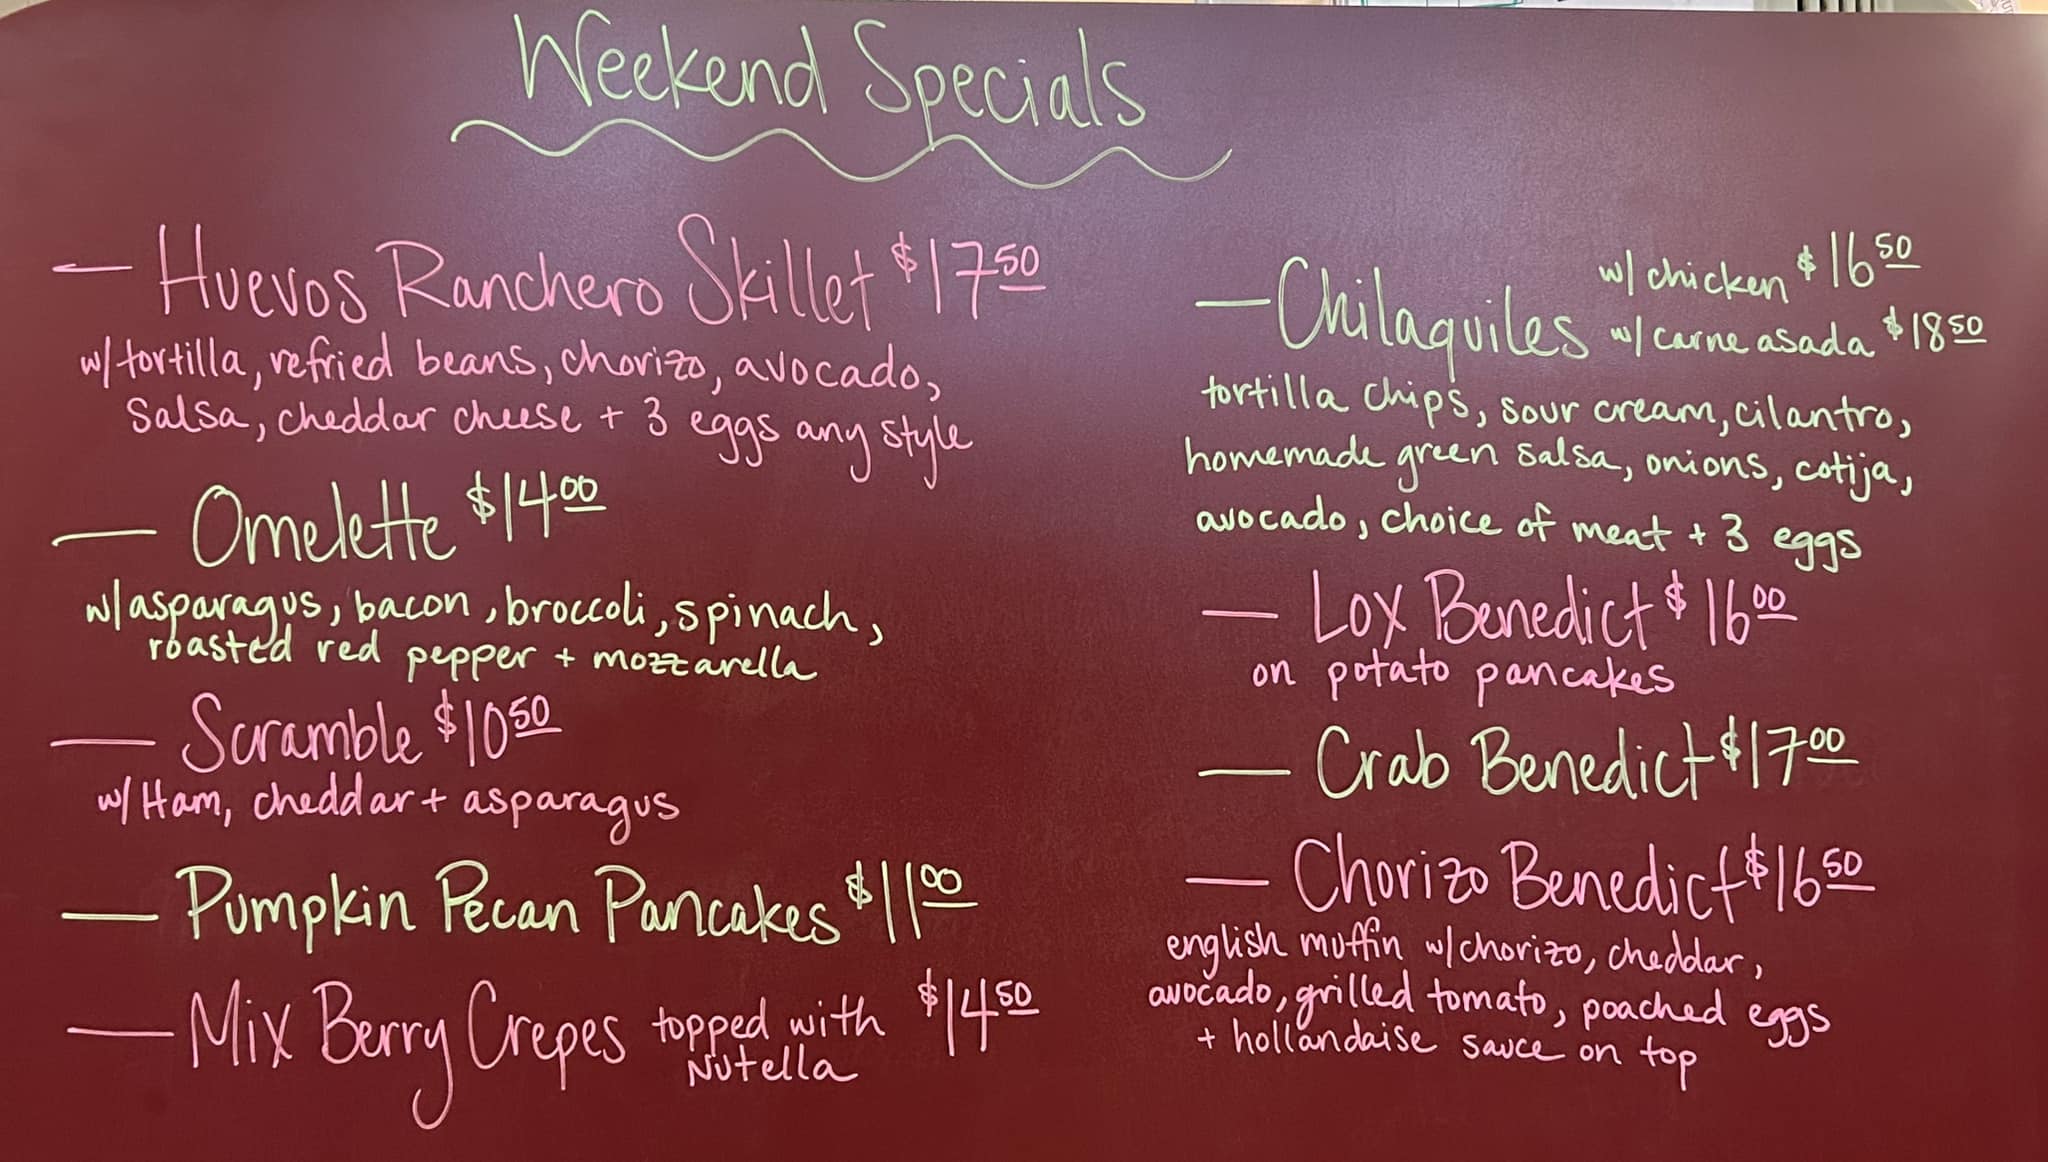 Weekend Specials
— Huevos Ranchero Skillet $17.50
w/tortilla, refried beans, chorizo, avocado,
salsa, cheddar cheese + 3 eggs any style
— Omelette $14.00
w/asparagus, bacon, broccoli, spinach,
roasted red pepper + mozzarella
— Scramble $10.50
w/ Ham, cheddar + asparagus
— Pumpkin Pecan Pancakes $11.00
— Mix Berry Crepes topped with $14.50
Nutella
w/ chicken $16.50
— Chilaquiles w/ carne asada $18.50
tortilla chips, sour cream, cilantro,
homemade green salsa, onions, cotija,
avocado, choice of meat + 3 eggs
— Lox Benedict $16.00
on potato pancakes
— Crab Benedict $17.00
— Chorizo Benedict $16.50
english muffin w/chorizo, cheddar,
avocado, grilled tomato, poached eggs
+ hollandaise sauce on top